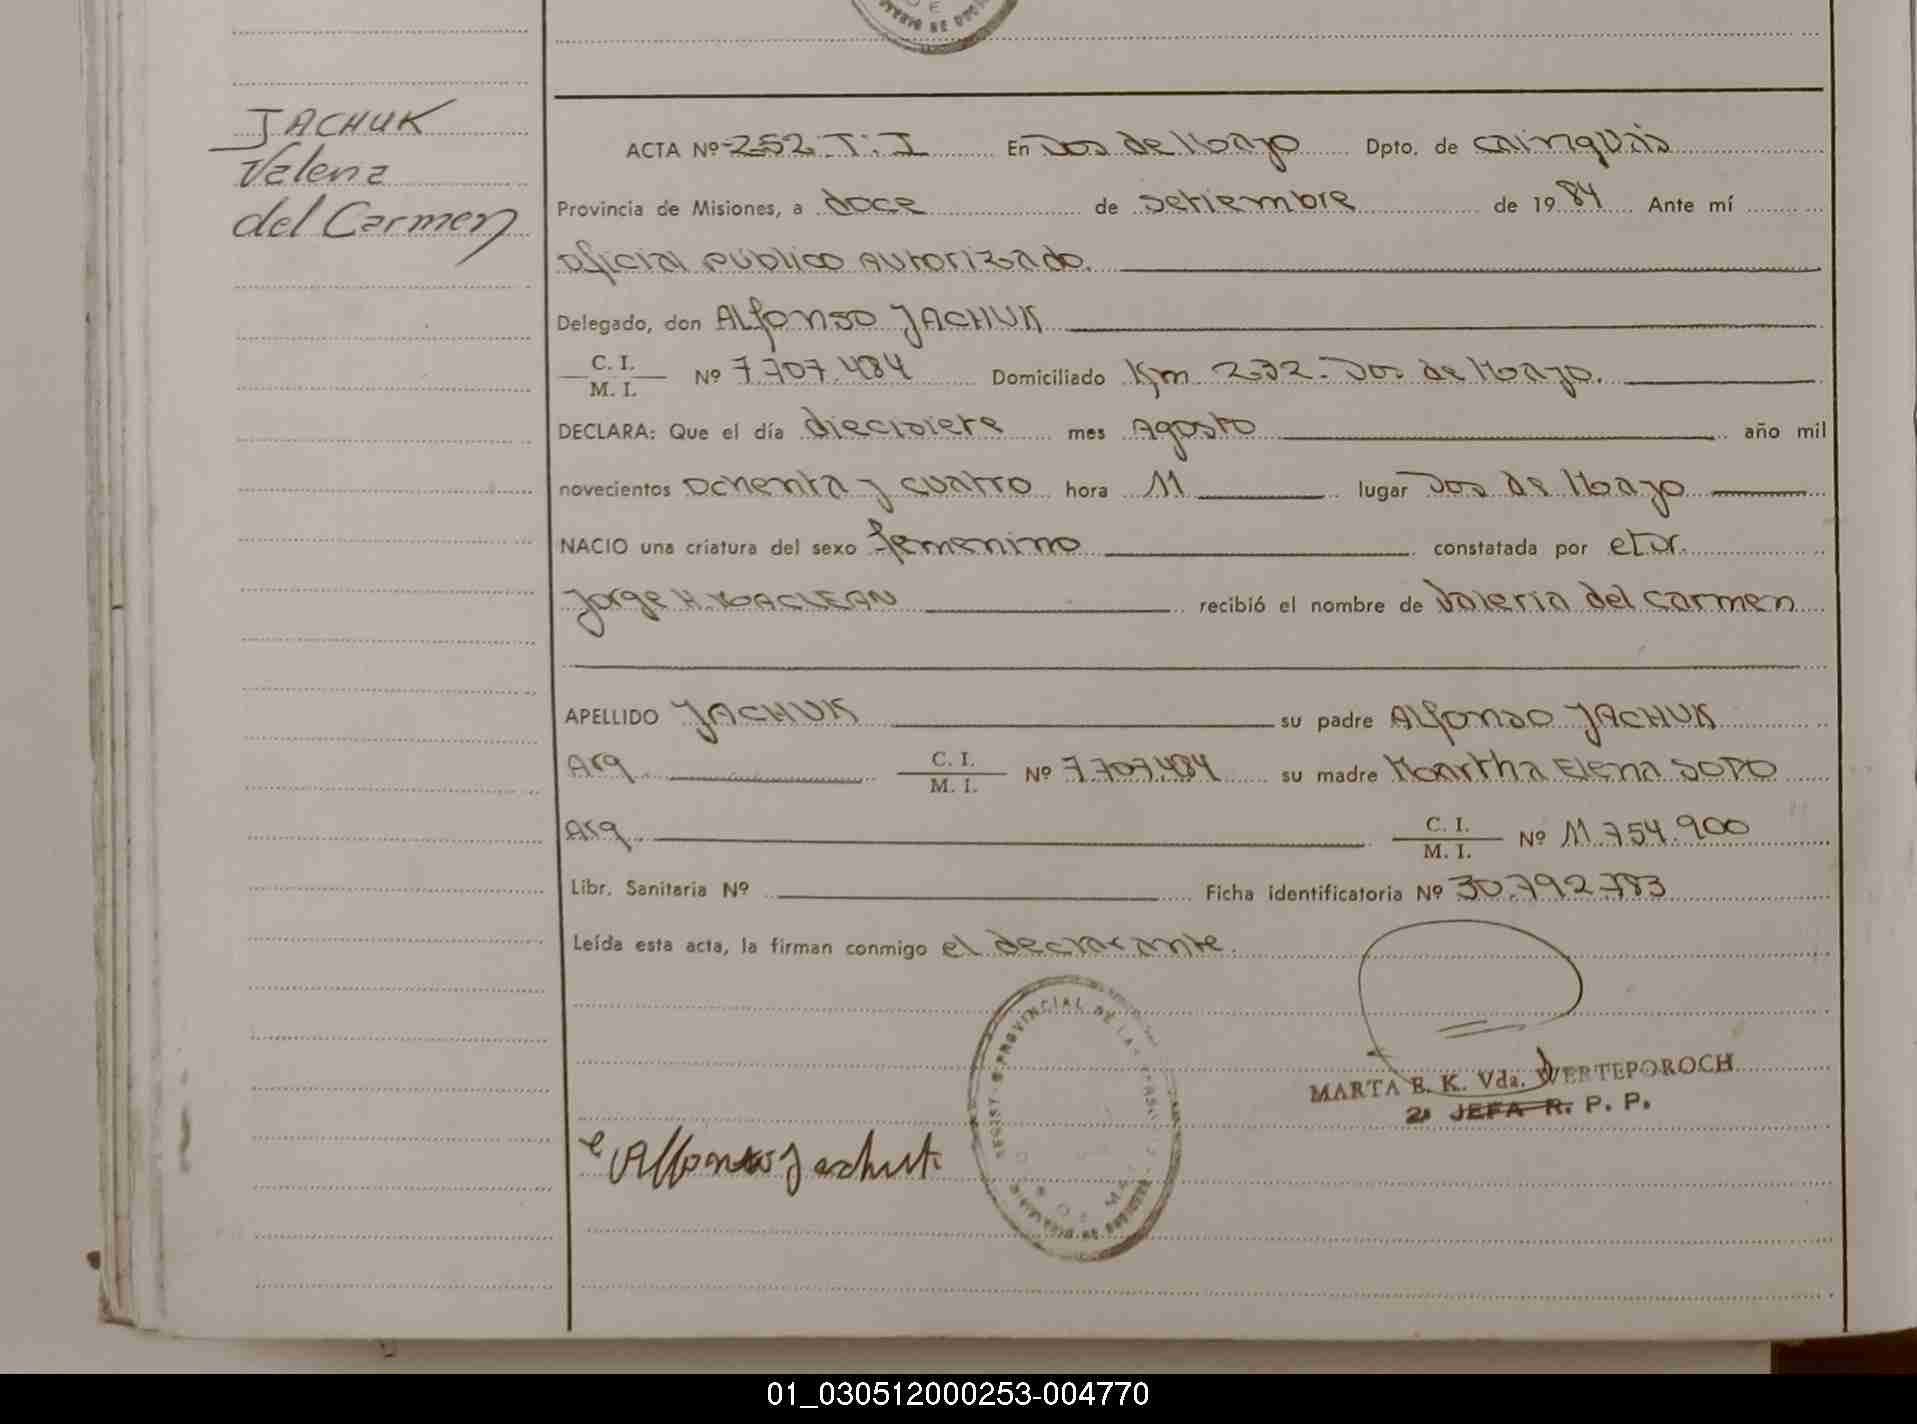 JACHUK
Valeria
del Carmen
ACTA Nº 252. T: I En Dos de Mayo Dpto. de Cainguás
Provincia de Misiones, a doce de setiembre de 1984 Ante mí
oficial público autorizado.
Delegado, don Alfonso JACHUK
C. I.
M. I. Nº 7.707.484 Domiciliado Km 272. Dos de Mayo.
DECLARA: Que el día diecisiete mes Agosto año mil
novecientos ochenta y cuatro hora 11 lugar Dos de Mayo
NACIO una criatura del sexo femenino constatada por el Dr.
Jorge H. MACLEAN recibió el nombre de Valeria del Carmen
APELLIDO JACHUK su padre Alfonso JACHUK
Arg. C. I.
M. I. Nº 7.707.484 su madre Martha Elena SOTO
Arg. C. I.
M. I. Nº 11.754.900
Libr. Sanitaria Nº Ficha identificatoria Nº 30.792.783
Leída esta acta, la firman conmigo el declarante.
REGISTRO PROVINCIAL DE LAS
MARTA E. K. Vda. WERTEPOROCH
2ª JEFA R. P. P.
Alfonso Jachuk
01_030512000253-004770